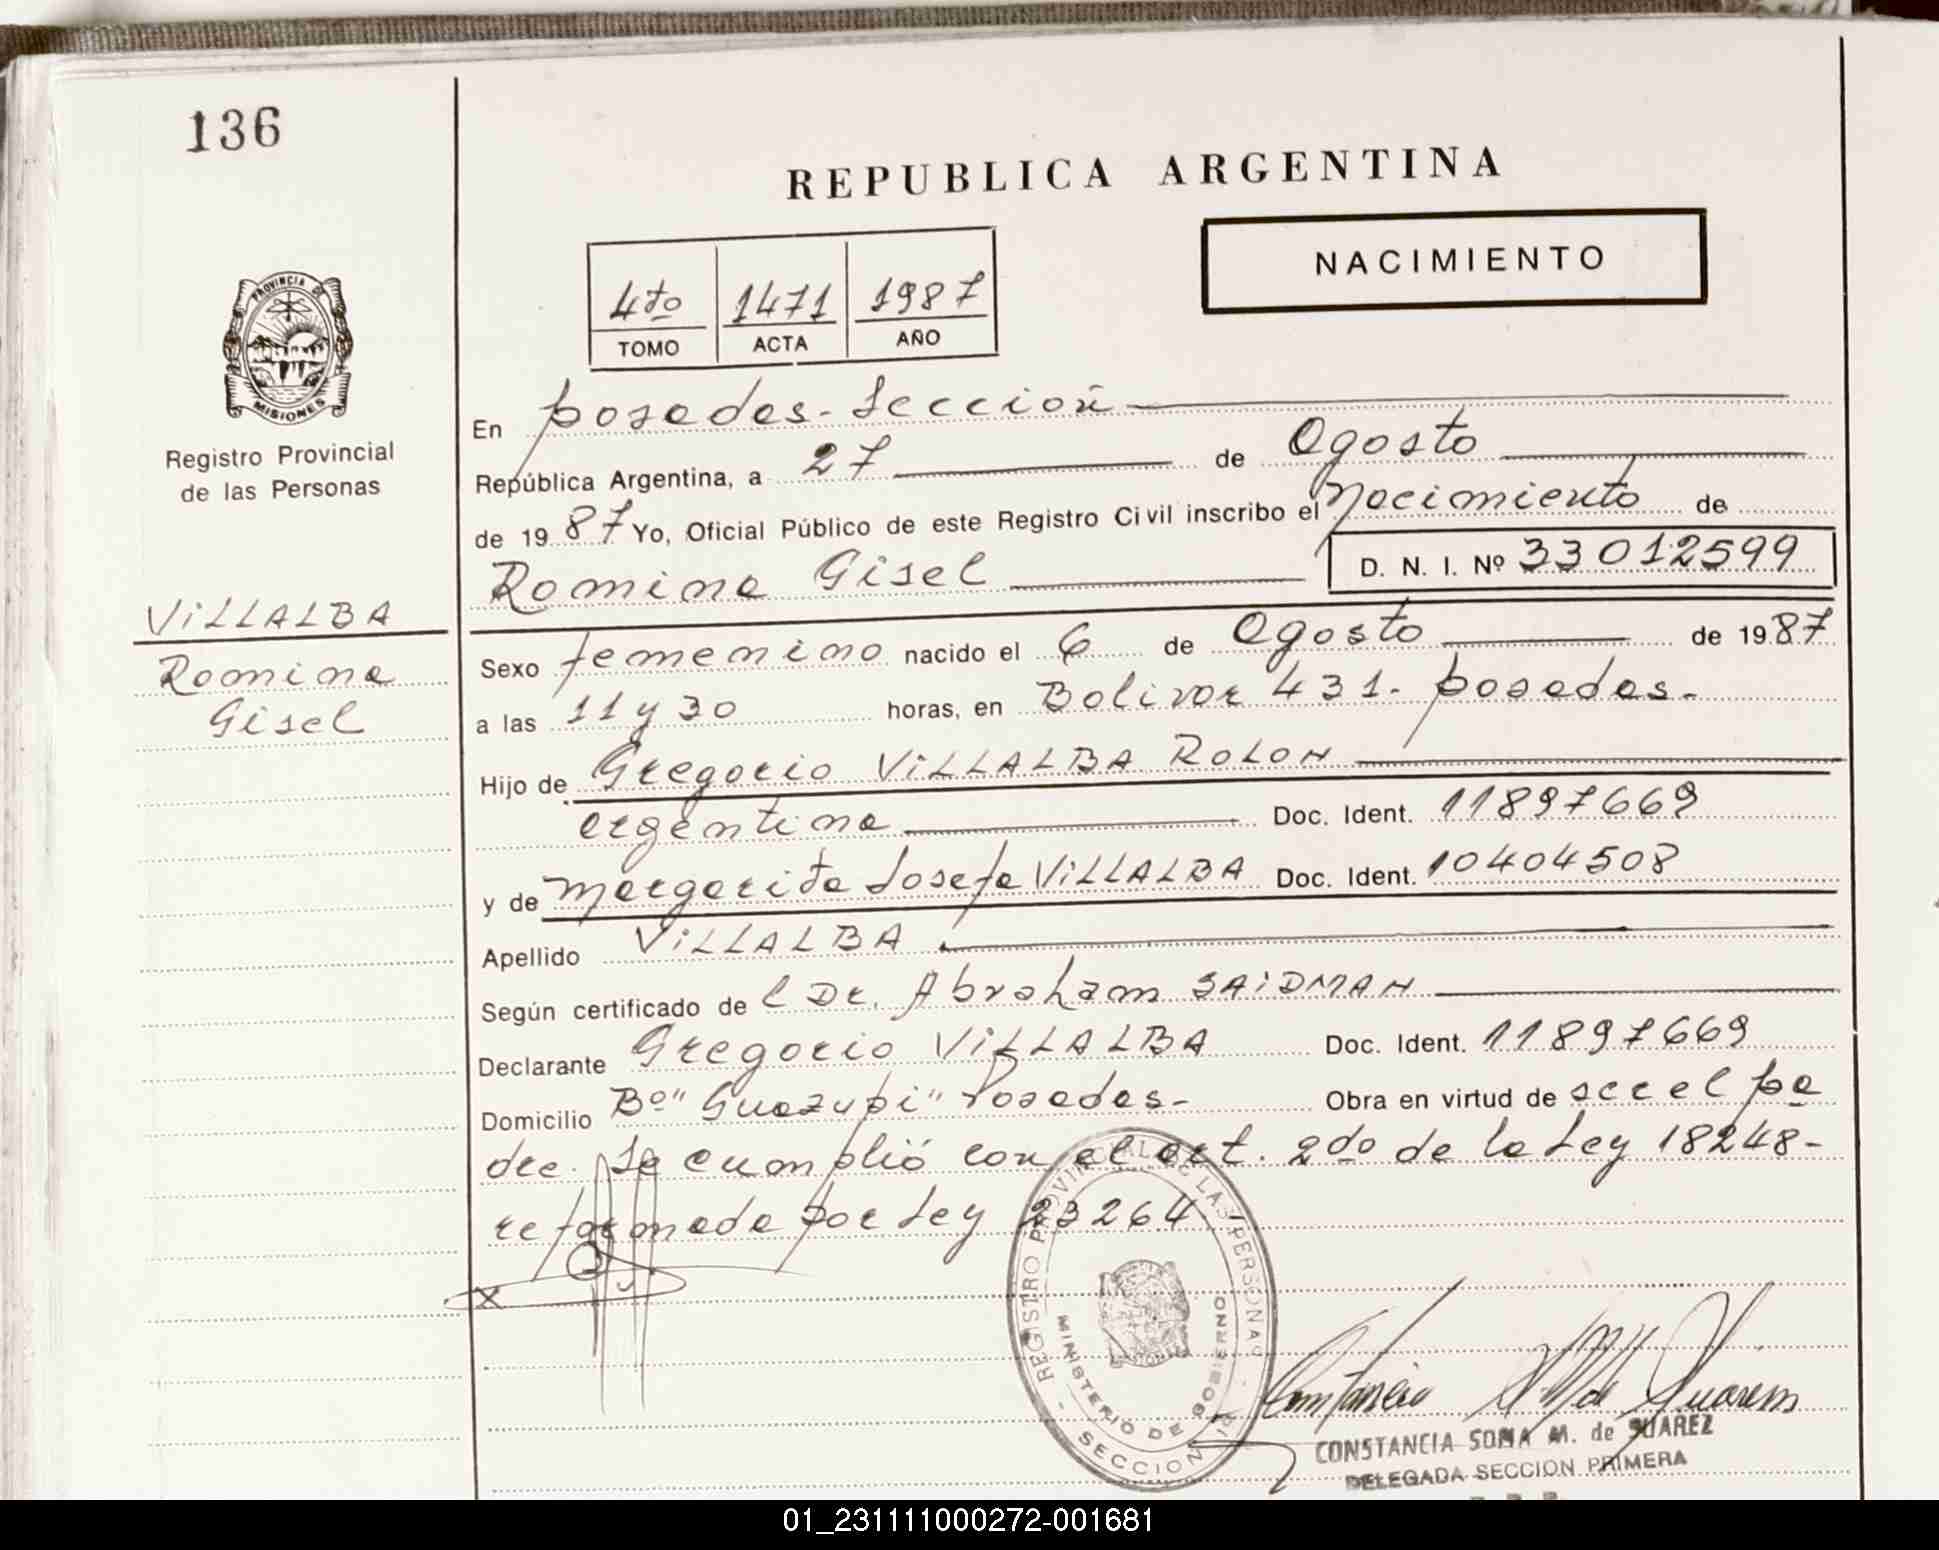 136
REPUBLICA ARGENTINA
NACIMIENTO
4to 1471 1987
TOMO ACTA AÑO
PROVINCIA DE MISIONES
Registro Provincial
de las Personas
En Posadas - Sección
República Argentina, a 27 de Agosto
de 1987 Yo, Oficial Público de este Registro Civil inscribo el Nacimiento de
Romina Gisel D. N. I. Nº 33012599
VILLALBA
Romina
Gisel
Sexo femenino nacido el 6 de Agosto de 1987
a las 11 y 30 horas, en Bolivar 431 - Posadas -
Hijo de Gregorio VILLALBA ROLON
argentina Doc. Ident. 11897669
y de Margarita Josefa VILLALBA Doc. Ident. 10404508
Apellido VILLALBA
Según certificado de l Dr. Abraham SAIDMAN
Declarante Gregorio VILLALBA Doc. Ident. 11897669
Domicilio Bº "Guazupi" Posadas - Obra en virtud de ser el pa
dre. Se cumplió con el art. 2do de la Ley 18248 -
reformada por Ley 23264 -
REGISTRO PROVINCIAL DE LAS PERSONAS
MINISTERIO DE GOBIERNO
SECCION
CONSTANCIA SONIA M. de SUAREZ
DELEGADA SECCION PRIMERA
01_231111000272-001681